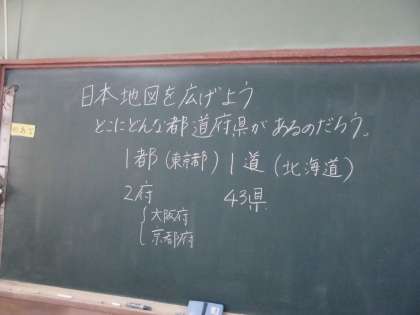 日本地図を広げよう
どこにどんな都道府県があるのだろう。
1都(東京都) 1道(北海道)
2府 43県
大阪府
京都府